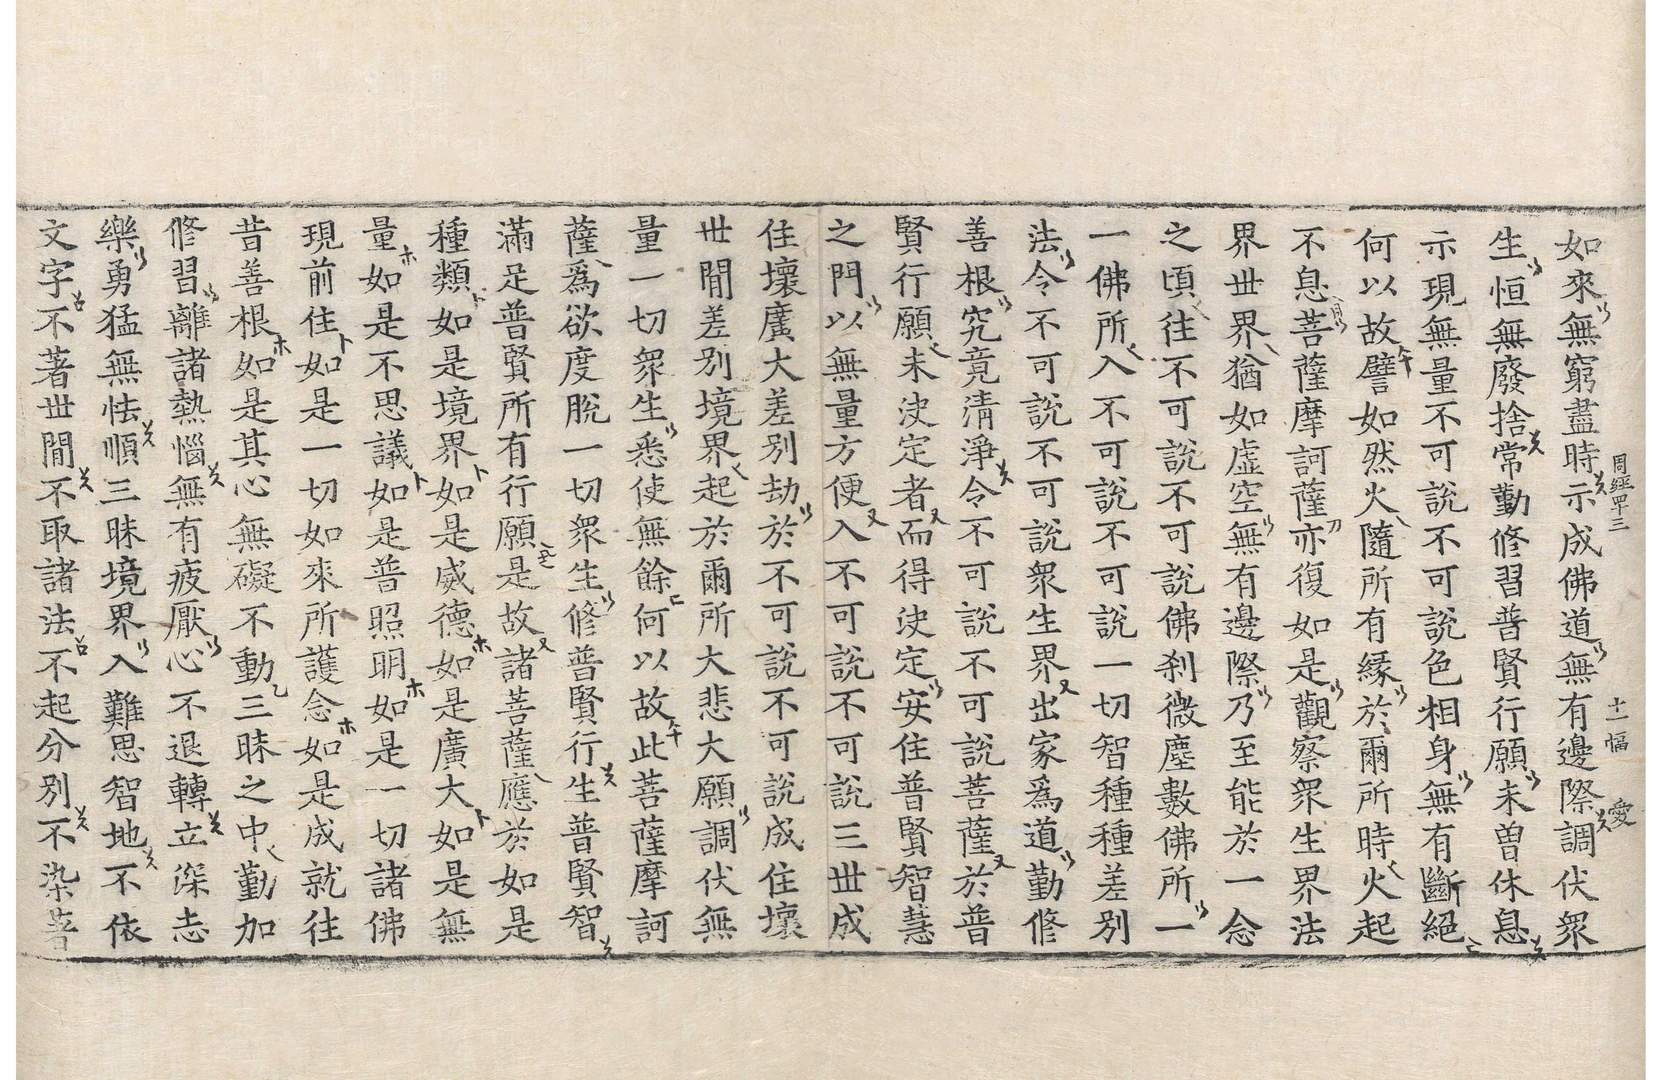 周經罒三 十一幅 愛
如來無窮盡時示成佛道無有邊際調伏眾
生恒無廢捨常勤修習普賢行願未曾休息
示現無量不可說不可說色相身無有斷絕
何以故譬如然火隨所有緣於爾所時火起
不息菩薩摩訶薩亦復如是觀察眾生界法
界世界猶如虛空無有邊際乃至能於一念
之頃往不可說不可說佛刹微塵數佛所一
一佛所入不可說不可說一切智種種差別
法令不可說不可說眾生界出家爲道勤修
善根究竟清淨令不可說不可說菩薩於普
賢行願未決定者而得決定安住普賢智慧
之門以無量方便入不可說不可說三世成
住壞廣大差別劫於不可說不可說成住壞
世間差別境界起於爾所大悲大願調伏無
量一切眾生悉使無餘何以故此菩薩摩訶
薩爲欲度脫一切眾生修普賢行生普賢智
滿足普賢所有行願是故諸菩薩應於如是
種類如是境界如是威德如是廣大如是無
量如是不思議如是普照明如是一切諸佛
現前住如是一切如來所護念如是成就往
昔善根如是其心無礙不動三昧之中勤加
修習離諸熱惱無有疲厭心不退轉立深志
樂勇猛無怯順三昧境界入難思智地不依
文字不著世間不取諸法不起分別不染著